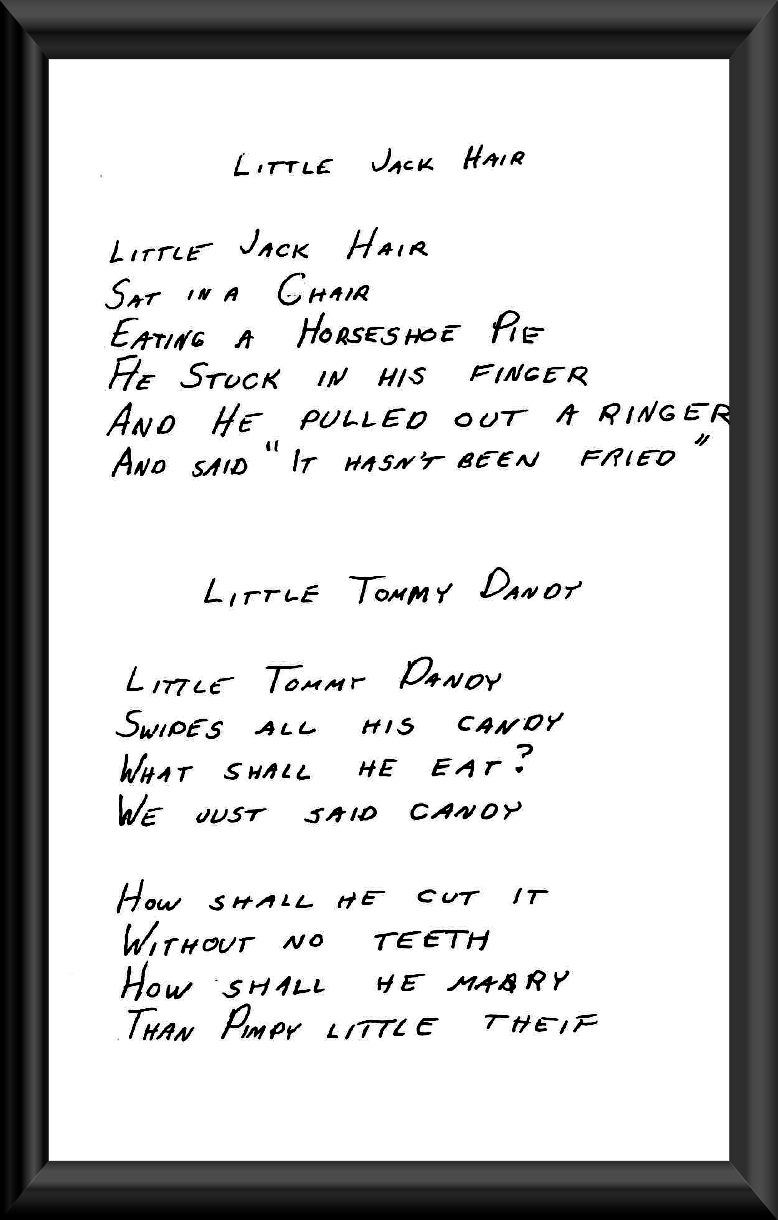 Little Jack Hair
Little Jack Hair
Sat in a Chair
Eating a Horseshoe Pie
He Stuck in his finger
And He pulled out a ringer
And said "It hasn't been fried"
Little Tommy Dandy
Little Tommy Dandy
Swipes all his candy
What shall he eat?
We just said candy
How shall he cut it
Without no teeth
How shall he marry
Than Pimpy little theif